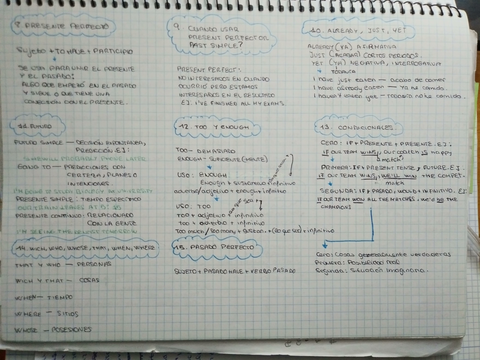 8. PRESENTE PERFECTO
SUJETO + TO HAVE + PARTICIPIO
SE USA PARA UNIR EL PRESENTE
Y EL PASADO:
ALGO QUE EMPEZÓ EN EL PASADO
Y SIGUE O QUE TIENE UNA
CONEXIÓN CON EL PRESENTE.
9. CUANDO USAR
PRESENT PERFECT OR
PAST SIMPLE?
PRESENT PERFECT:
NO INTERESADOS EN CUANDO
OCURRIÓ PERO ESTAMOS
INTERESADOS EN EL RESULTADO
EJ: I'VE FINISHED ALL MY EXAMS
10. ALREADY, JUST, YET
ALREADY (YA) AFIRMATIVA
JUST (ACABAR) CORTOS PERIODOS
YET (YA) NEGATIVA, INTERROGATIVA
TODAVÍA
I have just eaten — acabo de comer
I have already eaten — ya he comido
I haven't eaten yet — todavía no he comido
11. FUTURO
FUTURO SIMPLE — DECISIÓN INDIVIDUAL,
PREDICCIÓN EJ:
GOING TO — PREDICCIONES CON
CERTEZA, PLANES O
INTENCIONES
PRESENTE SIMPLE: TIEMPO ESPECÍFICO
PRESENTE CONTINUO: RELACIONADO
CON LA GENTE
12. TOO Y ENOUGH
TOO — DEMASIADO
ENOUGH — SUFICIENTE (MENTE)
USO: ENOUGH
Enough + sustantivo + infinitivo
adverbio/adjetivo + enough + infinitivo
USO: TOO
too + adjetivo + infinitivo
too + adverbio + infinitivo
13. CONDICIONALES
CERO: IF + PRESENTE, PRESENTE. EJ:
IF OUR TEAM WINS, OUR COACH IS HAPPY
MATCH
PRIMERA: IF + PRESENT TENSE, FUTURE. EJ:
IF OUR TEAM WINS, WE'LL WIN THE COMPET.
SEGUNDA: IF + PASADO, WOULD + INFINITIVO. EJ:
IF OUR TEAM WON ALL THE MATCHES, WE'D BE THE
CHAMPIONS
Primera: Posibilidad real
Segunda: Situación imaginaria
14. WICH, WHO, WHOSE, THAT, WHEN, WHERE
THAT Y WHO — PERSONAS
WICH Y THAT — COSAS
WHEN — TIEMPO
WHERE — SITIOS
WHOSE — POSESIONES
15. PASADO PERFECTO
SUJETO + PASADO HAVE + VERBO PASADO